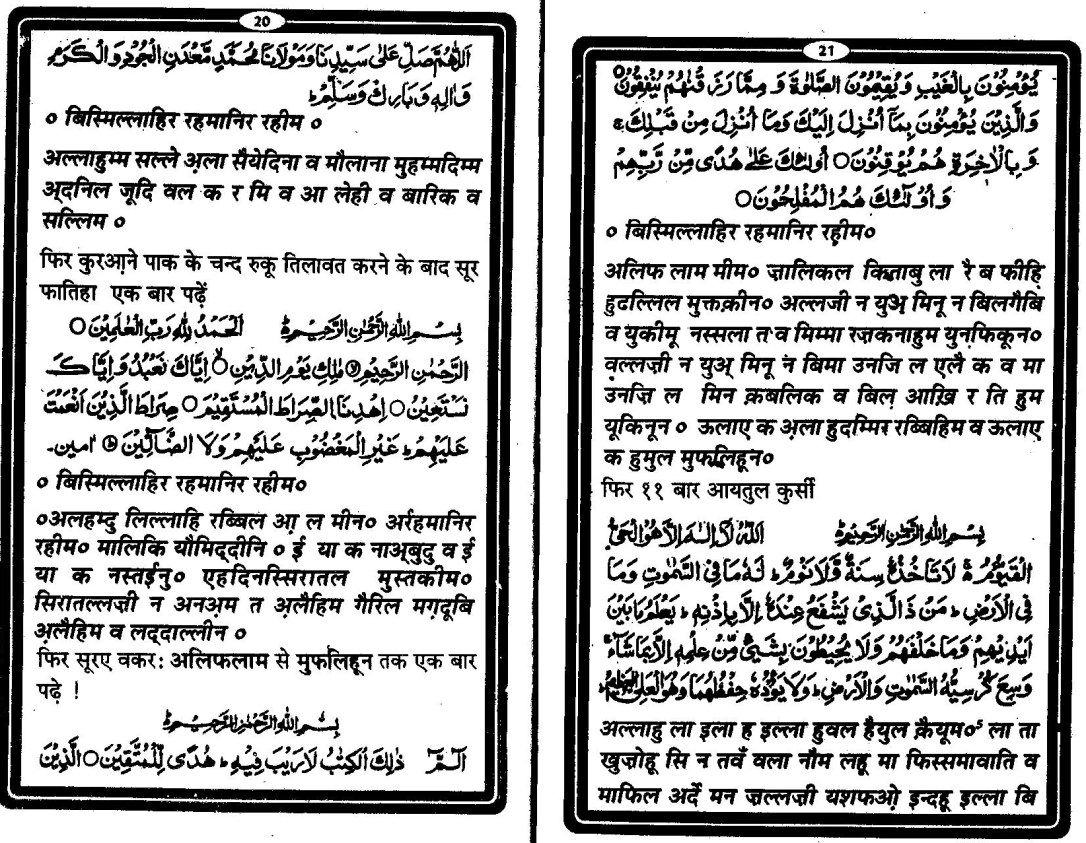 20
اَللّٰهُمَّ صَلِّ عَلٰى سَيِّدِنَا وَمَوْلَانَا مُحَمَّدٍ مَّعْدَنِ الْجُوْدِ وَالْكَرَمِ
وَاٰلِهٖ وَبَارِكْ وَسَلِّمْ ؕ
० बिस्मिल्लाहिर रहमानिर रहीम ०
अल्लाहुम्म सल्ले अ़ला सैयेदिना व मौलाना मुहम्मदिम्म
अ़्दनिल जूदि वल क र मि व आ लेही व बारिक व
सल्लिम ०
फिर कुरआ़ने पाक के चन्द रुकू तिलावत करने के बाद सूर
फातिहा एक बार पढ़ें
بِسْمِ اللّٰهِ الرَّحْمٰنِ الرَّحِيْمِ ؕ اَلْحَمْدُ لِلّٰهِ رَبِّ الْعٰلَمِيْنَ ○
الرَّحْمٰنِ الرَّحِيْمِ ○ مٰلِكِ يَوْمِ الدِّيْنِ ○ اِيَّاكَ نَعْبُدُ وَاِيَّاكَ
نَسْتَعِيْنُ ○ اِهْدِنَا الصِّرَاطَ الْمُسْتَقِيْمَ ○ صِرَاطَ الَّذِيْنَ اَنْعَمْتَ
عَلَيْهِمْ ؕ غَيْرِ الْمَغْضُوْبِ عَلَيْهِمْ وَلَا الضَّآلِّيْنَ ○ اٰمين۔
० बिस्मिल्लाहिर रहमानिर रहीम०
०अलहम्दु लिल्लाहि रब्बिल आ़ ल मीन० अर्रहमानिर
रहीम० मालिकि यौमिद्दीनि ० ई या क नाअ़्बुदु व ई
या क नस्तईनु० एहदिनस्सिरातल मुस्तकीम०
सिरातल्लज़ी न अनअ़म त अ़लैहिम गैरिल मग़दूबि
अ़लैहिम व लद्दाल्लीन ०
फिर सूरए वकर: अलिफलाम से मुफलिहून तक एक बार
पढ़े !
بِسْمِ اللّٰهِ الرَّحْمٰنِ الرَّحِيْمِ ؕ
الٓمّٓ ذٰلِكَ الْكِتٰبُ لَا رَيْبَ فِيْهِ ۛ هُدًى لِّلْمُتَّقِيْنَ ○ الَّذِيْنَ
21
يُؤْمِنُوْنَ بِالْغَيْبِ وَيُقِيْمُوْنَ الصَّلٰوةَ وَ مِمَّا رَزَقْنٰهُمْ يُنْفِقُوْنَ ○
وَالَّذِيْنَ يُؤْمِنُوْنَ بِمَآ اُنْزِلَ اِلَيْكَ وَمَآ اُنْزِلَ مِنْ قَبْلِكَ ۚ
وَ بِالْاٰخِرَةِ هُمْ يُوْقِنُوْنَ ○ اُولٰٓئِكَ عَلٰى هُدًى مِّنْ رَّبِّهِمْ
وَ اُولٰٓئِكَ هُمُ الْمُفْلِحُوْنَ ○
० बिस्मिल्लाहिर रहमानिर रहीम०
अलिफ लाम मीम० ज़ालिकल किताबु ला रै ब फीहि
हुदल्लिल मुक्तक़ीन० अल्लजी न युअ़् मिनू न बिलगैबि
व युकीमू नस्सला त व मिम्मा रज़कनाहुम युनफिकून०
वल्लज़ी न युअ़् मिनू न बिमा उनजि ल एलै क व मा
उनज़ि ल मिन क़बलिक व बिल आख़ि र ति हुम
यूकिनून ० ऊलाए क अ़ला हुदम्मिर रब्बिहिम व ऊलाए
क हुमुल मुफलिहून०
फिर ११ बार आयतुल कुर्सी
بِسْمِ اللّٰهِ الرَّحْمٰنِ الرَّحِيْمِ ؕ اَللّٰهُ لَآ اِلٰهَ اِلَّا هُوَ الْحَىُّ
الْقَيُّوْمُ ۚ لَا تَاْخُذُهٗ سِنَةٌ وَّلَا نَوْمٌ ؕ لَهٗ مَا فِى السَّمٰوٰتِ وَمَا
فِى الْاَرْضِ ؕ مَنْ ذَا الَّذِىْ يَشْفَعُ عِنْدَهٗٓ اِلَّا بِاِذْنِهٖ ؕ يَعْلَمُ مَا بَيْنَ
اَيْدِيْهِمْ وَمَا خَلْفَهُمْ وَلَا يُحِيْطُوْنَ بِشَىْءٍ مِّنْ عِلْمِهٖٓ اِلَّا بِمَا شَآءَ ۚ
وَسِعَ كُرْسِيُّهُ السَّمٰوٰتِ وَالْاَرْضَ ۚ وَلَا يَؤُدُهٗ حِفْظُهُمَا وَهُوَ الْعَلِىُّ الْعَظِيْمُ ؕ
अल्लाहु ला इला ह इल्ला हुवल हैयुल क़ैयूम० ला ता
खुज़ोहू सि न तवँ वला नौम लहू मा फिस्समावाति व
माफिल अर्दे मन ज़ल्लज़ी यशफओ़ इन्दहू इल्ला बि